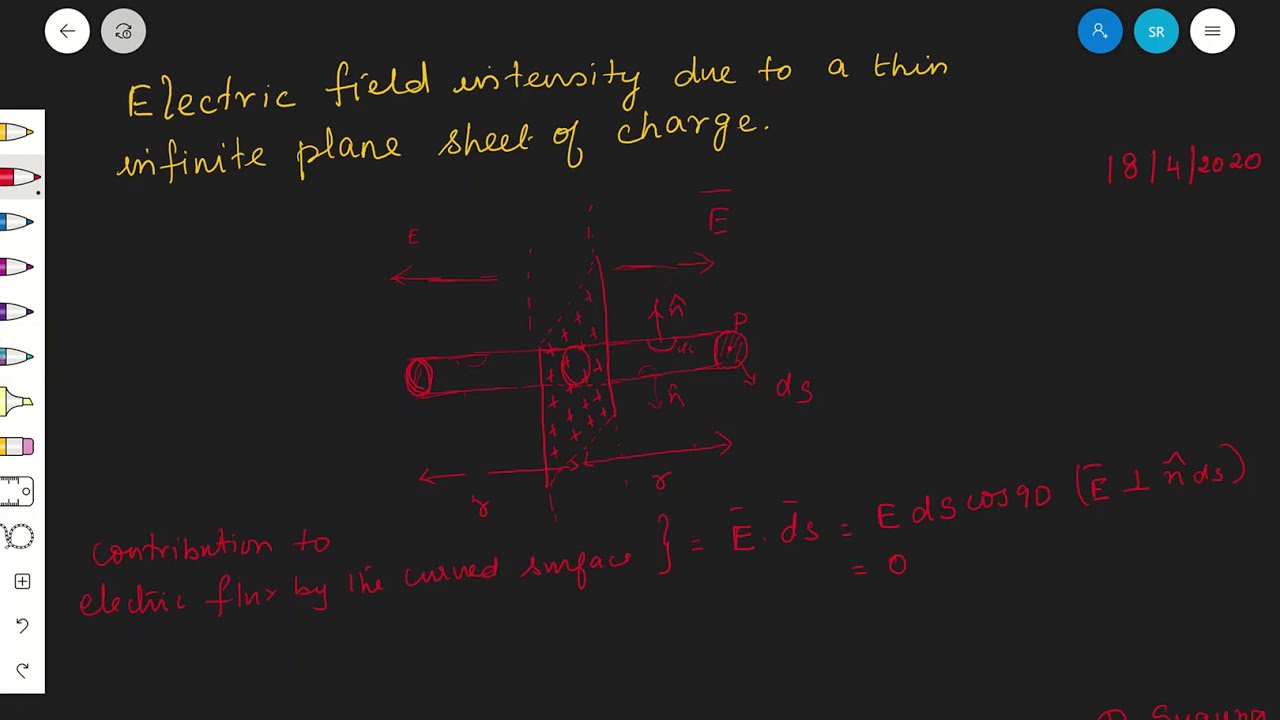 SR
Electric field intensity due to a thin
infinite plane sheet of charge.
18/4/2020
E
E̅
n̂
P
ds
n̂
ds
r
r
contribution to
electric flux by the curved surface } = E̅ . d̅s = E ds cos 90 (E̅ ⊥ n̂ ds)
= 0